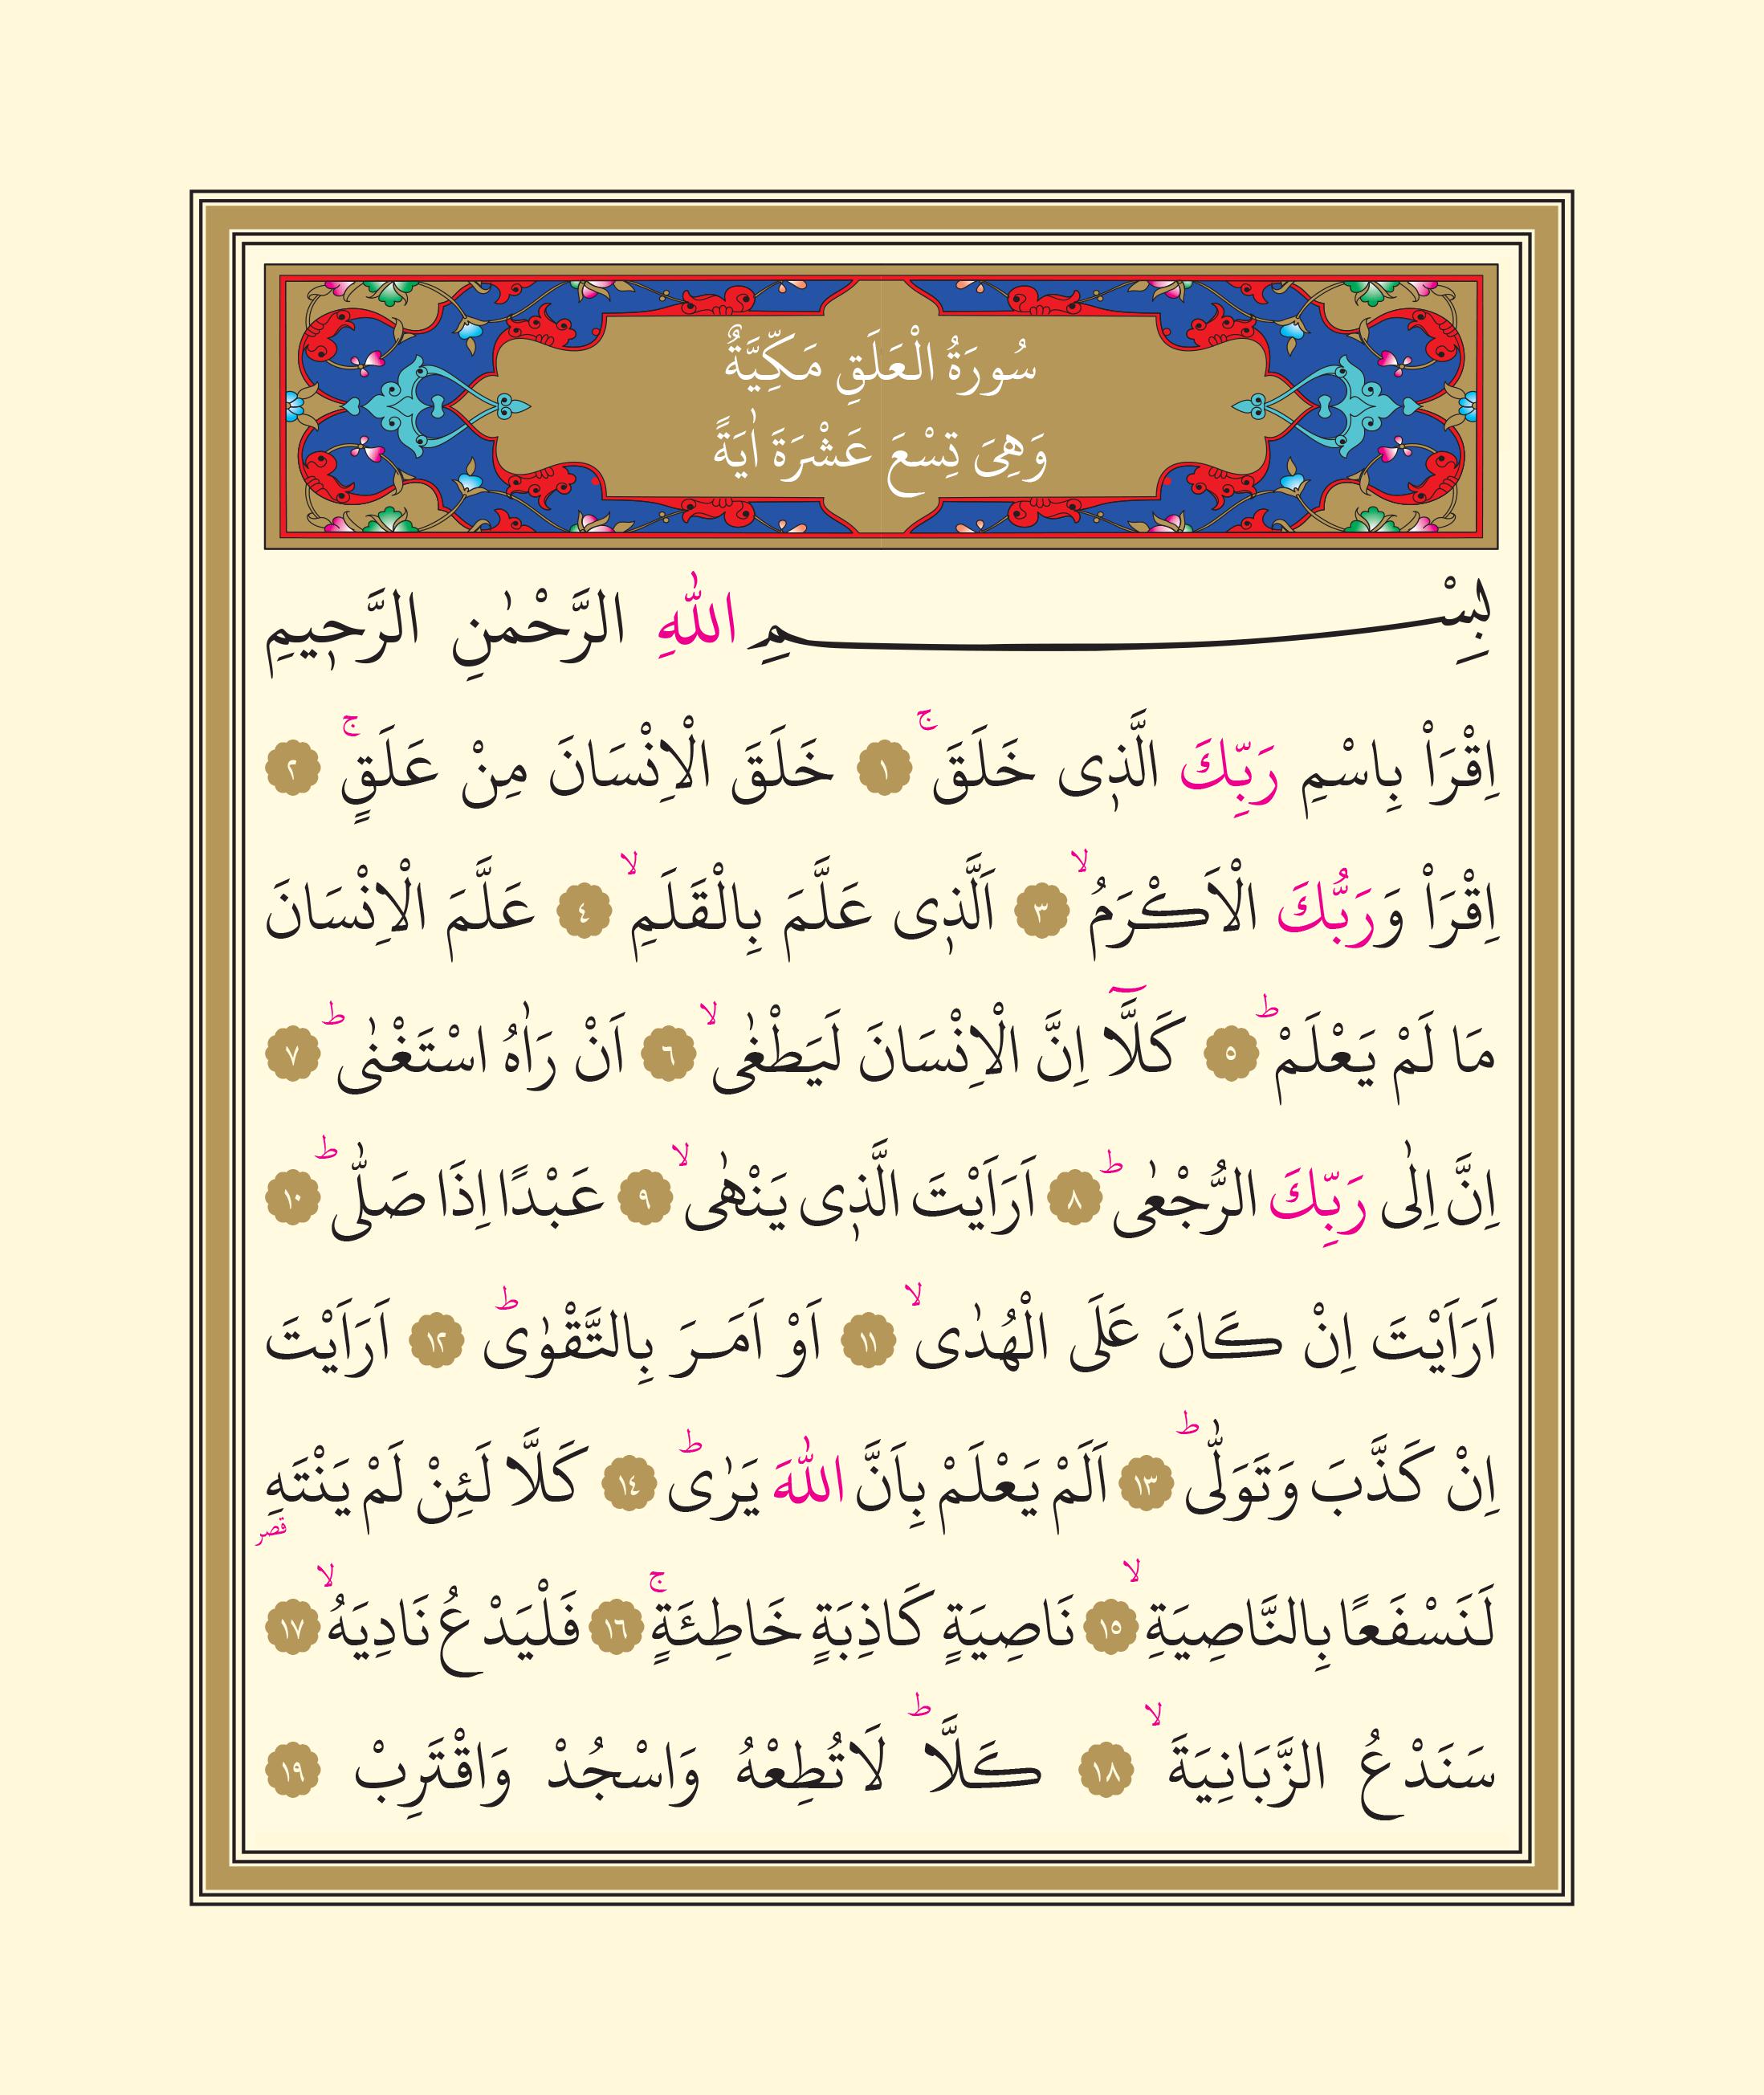 سُورَةُ الْعَلَقِ مَكِّيَّةٌ
وَهِيَ تِسْعَ عَشْرَةَ اٰيَةً
بِسْمِ اللّٰهِ الرَّحْمٰنِ الرَّح۪يمِ
اِقْرَاْ بِاسْمِ رَبِّكَ الَّذ۪ى خَلَقَۚ ﴿١﴾ خَلَقَ الْاِنْسَانَ مِنْ عَلَقٍۚ ﴿٢﴾
اِقْرَاْ وَرَبُّكَ الْاَكْرَمُۙ ﴿٣﴾ اَلَّذ۪ى عَلَّمَ بِالْقَلَمِۙ ﴿٤﴾ عَلَّمَ الْاِنْسَانَ
مَا لَمْ يَعْلَمْۜ ﴿٥﴾ كَلَّٓا اِنَّ الْاِنْسَانَ لَيَطْغٰىۙ ﴿٦﴾ اَنْ رَاٰهُ اسْتَغْنٰىۜ ﴿٧﴾
اِنَّ اِلٰى رَبِّكَ الرُّجْعٰىۜ ﴿٨﴾ اَرَاَيْتَ الَّذ۪ى يَنْهٰىۙ ﴿٩﴾ عَبْدًا اِذَا صَلّٰىۜ ﴿١٠﴾
اَرَاَيْتَ اِنْ كَانَ عَلَى الْهُدٰىۙ ﴿١١﴾ اَوْ اَمَرَ بِالتَّقْوٰىۜ ﴿١٢﴾ اَرَاَيْتَ
اِنْ كَذَّبَ وَتَوَلّٰىۜ ﴿١٣﴾ اَلَمْ يَعْلَمْ بِاَنَّ اللّٰهَ يَرٰىۜ ﴿١٤﴾ كَلَّا لَئِنْ لَمْ يَنْتَهِ
قصر
لَنَسْفَعًا بِالنَّاصِيَةِۙ ﴿١٥﴾ نَاصِيَةٍ كَاذِبَةٍ خَاطِئَةٍۚ ﴿١٦﴾ فَلْيَدْعُ نَادِيَهُۙ ﴿١٧﴾
سَنَدْعُ الزَّبَانِيَةَۙ ﴿١٨﴾ كَلَّاۜ لَا تُطِعْهُ وَاسْجُدْ وَاقْتَرِبْ ﴿١٩﴾